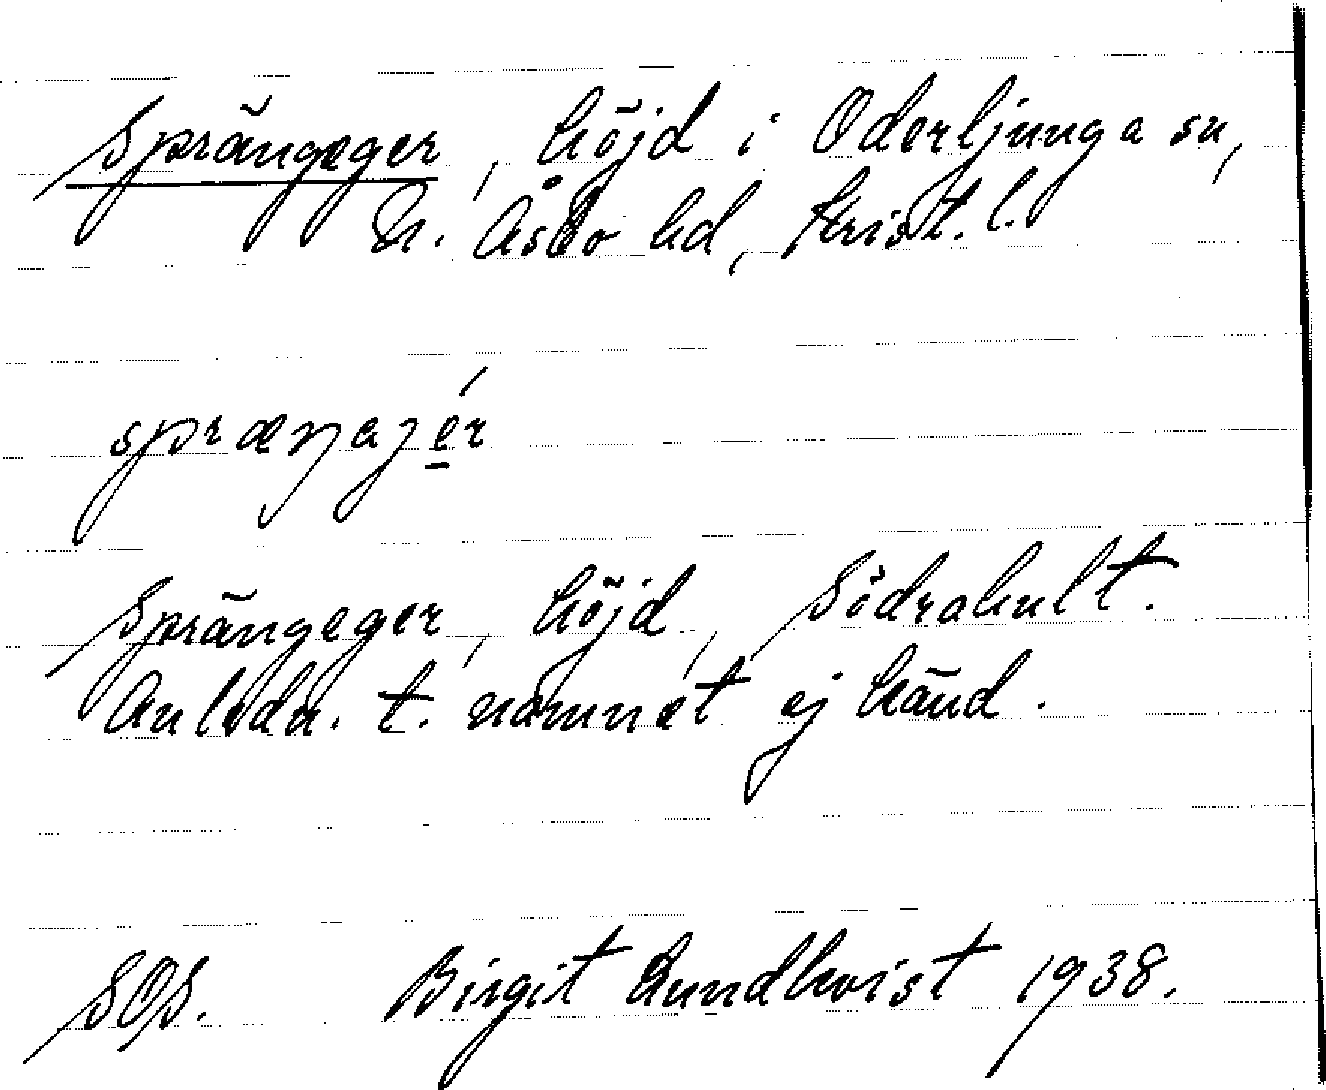 Sprängeger, höjd i Oderljunga sn,
N. Åsbo hd, Krist. l.
spræŋajér
Sprängeger, höjd, Södrahult.
Anledn. t. namnet ej känd.
SOS. Birgit Lundkvist 1938.